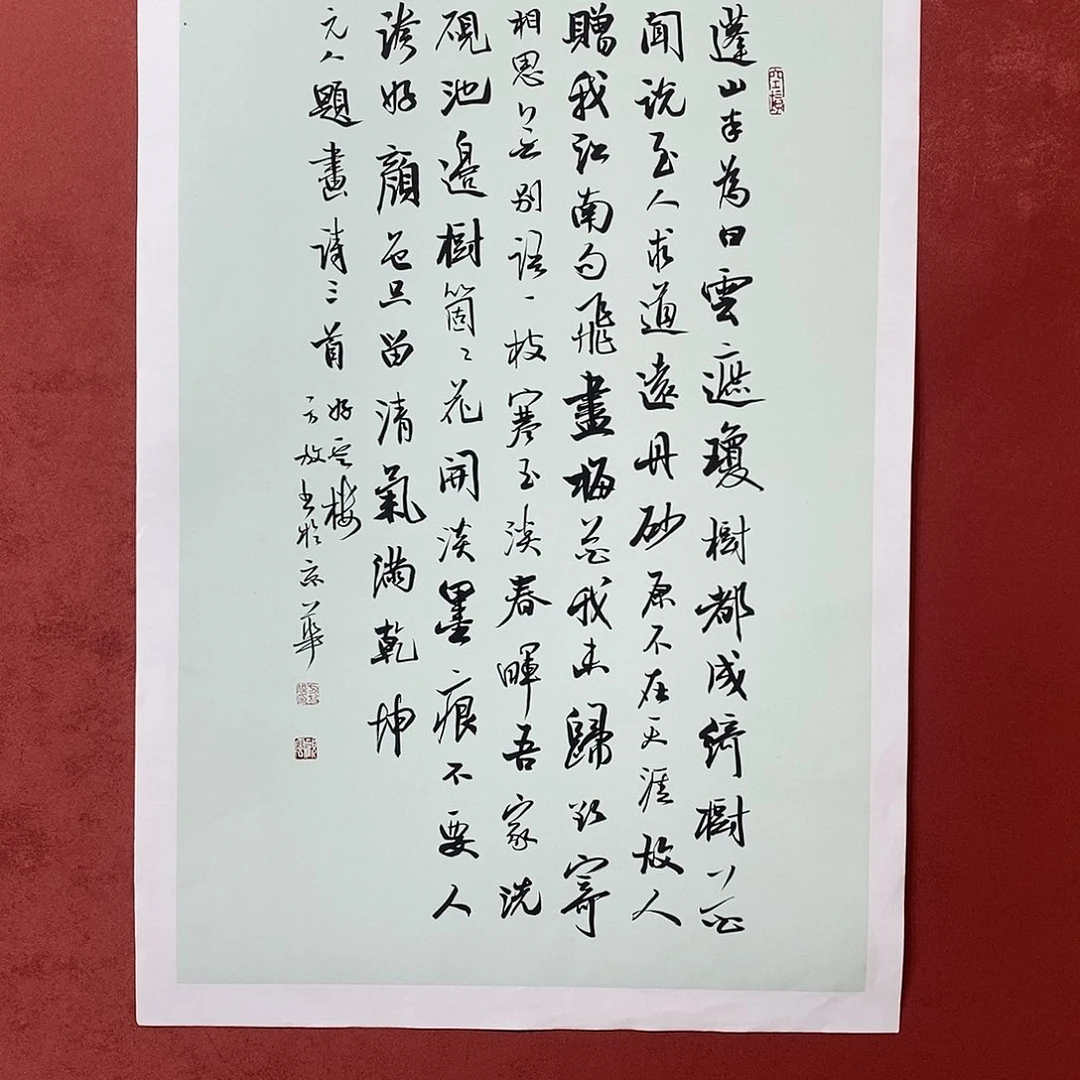 蓬山半為白雲遮瓊樹都成綺樹花
聞說至人求道遠丹砂原不在天涯故人
贈我江南句飛盡梅花我未歸欲寄
相思無別語一枝寒玉淡春暉吾家洗
硯池邊樹箇々花開淡墨痕不要人
誇好顏色只留清氣滿乾坤
元人題畫詩三首
好雲樓
方放書於京華